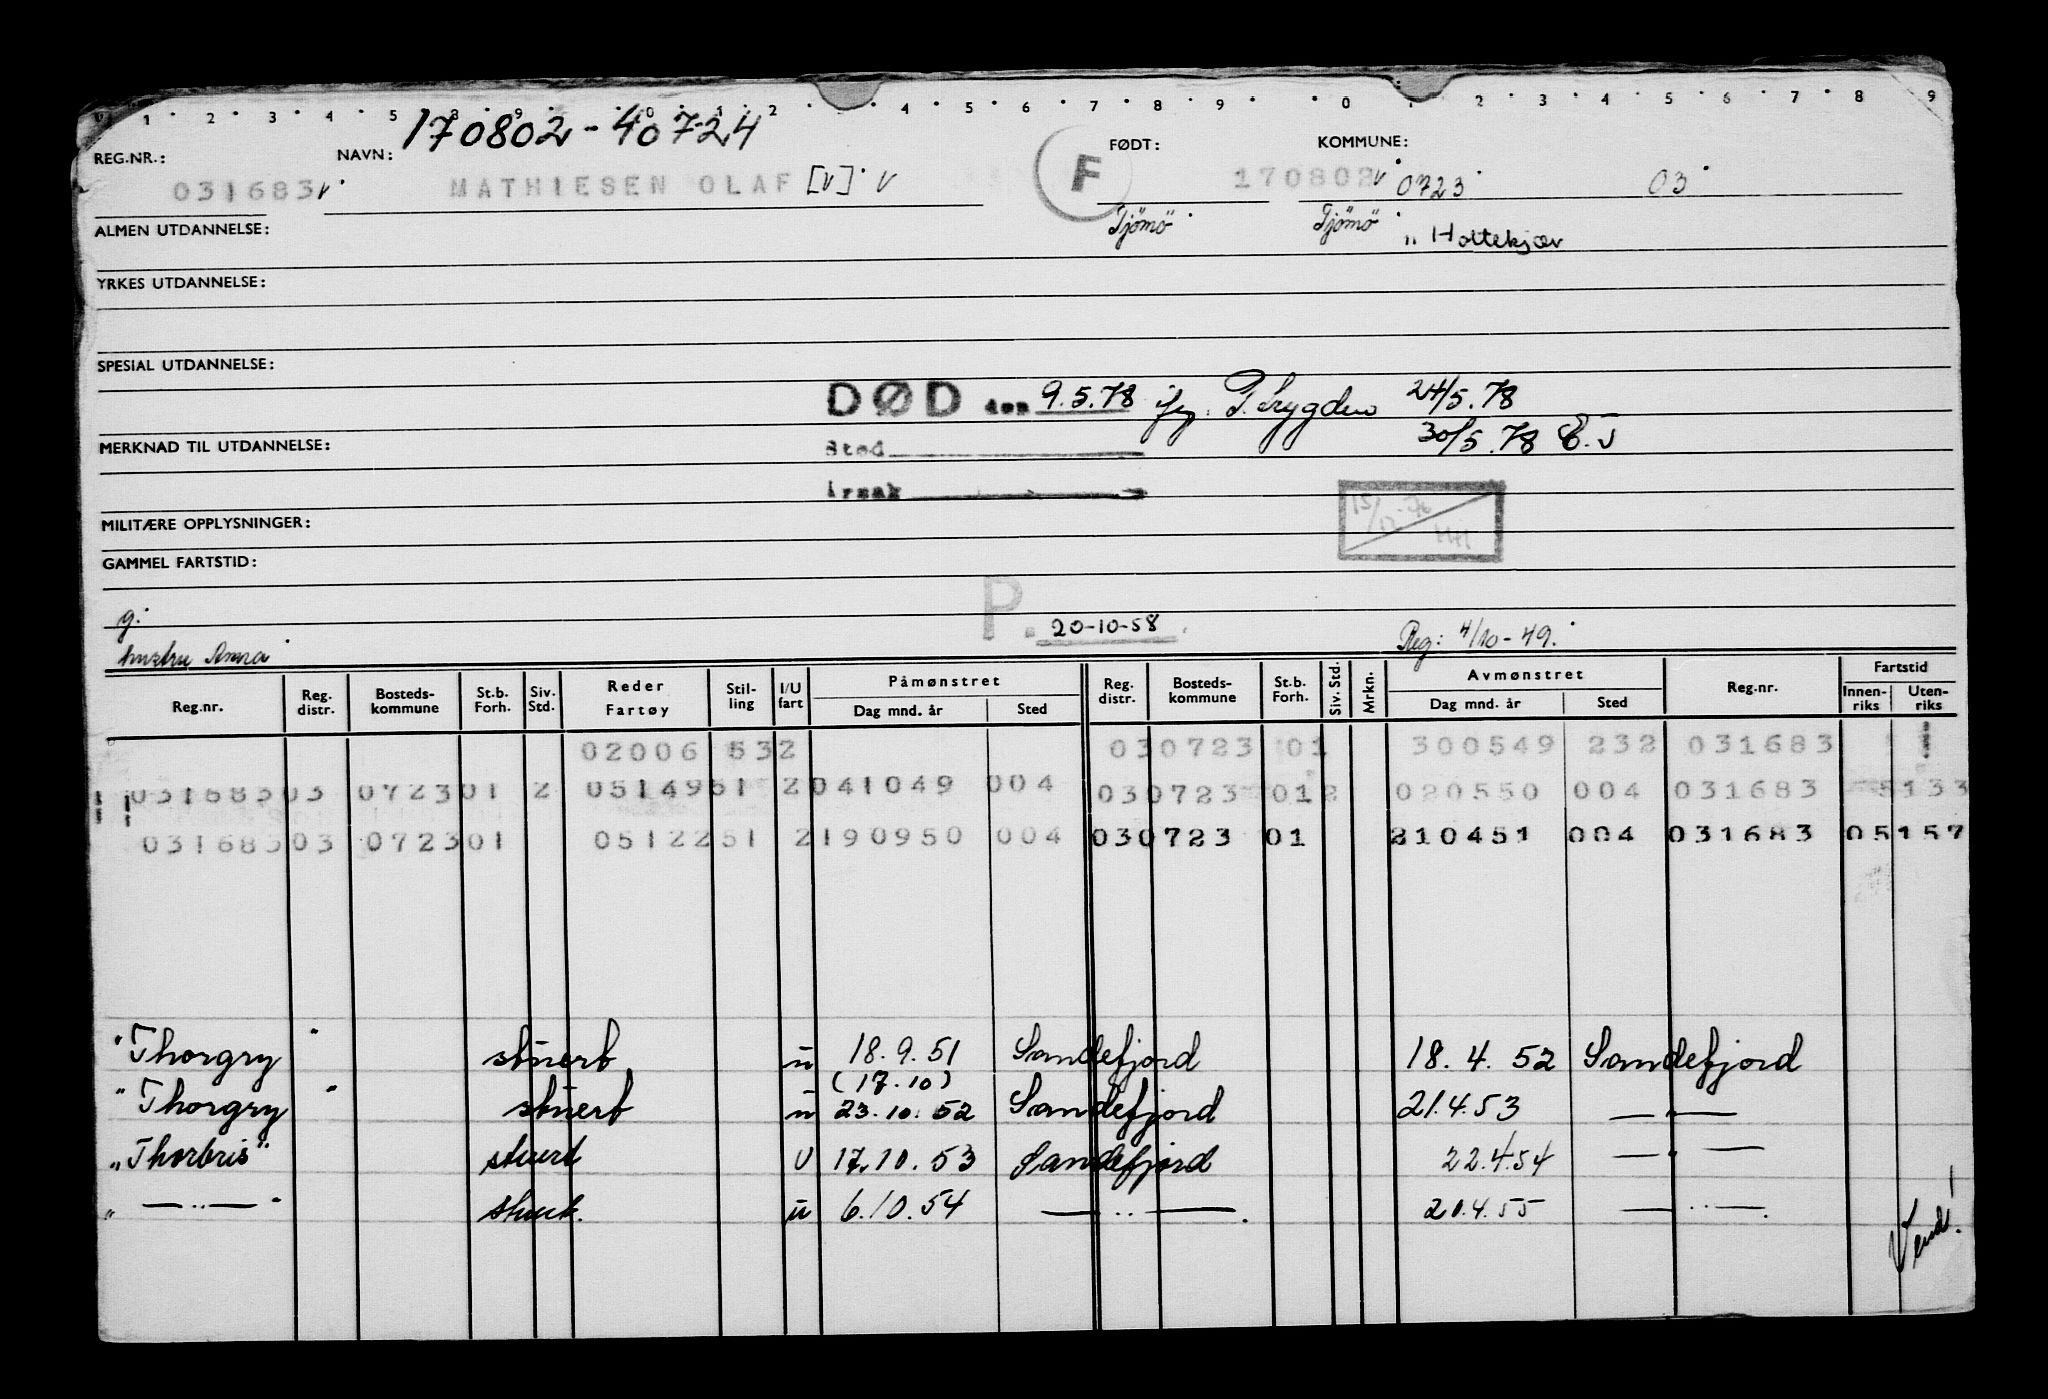 1 2 3 4 5 8 9 0 1 2 4 5 6 7 8 9 0 1 2 3 4 5 6 7 8 9
170802-40724
REG.NR.: NAVN: F FØDT: KOMMUNE:
031683 MATHIESEN OLAF [V] V 170802 V 0723 03
ALMEN UTDANNELSE: Tjömö Tjömö " Holtekjær
YRKES UTDANNELSE:
SPESIAL UTDANNELSE:
DØD den 9.5.78 24/5.78
MERKNAD TIL UTDANNELSE: Sted 30/5.78
Årsak
MILITÆRE OPPLYSNINGER: 15/12-76
GAMMEL FARTSTID:
g. P. 20-10-58 Reg: 4/10-49.
hustru Anna
Reg.nr. Reg. distr. Bosteds-kommune St.b. Forh. Siv. Std. Reder Fartøy Stil-ling I/U fart Påmønstret Dag mnd. år Sted Reg. distr. Bosteds-kommune St.b. Forh. Siv. Std. Mrkn. Avmønstret Dag mnd. år Sted Reg.nr. Fartstid Innen-riks Uten-riks
02006 532 030723 01 300549 232 031683
03168303 072301 2 0514951 2041049 004 030723 012 020550 004 031683 5133
03168303 072301 0512251 2190950 004 030723 01 210451 004 031683 05157
"Thorgry" stuert u 18.9.51 Sandefjord 18.4.52 Sandefjord
(17.10)
"Thorgry" stuert u 23.10.52 Sandefjord 21.4.53 — " —
"Thorbris" stuert U 17.10.53 Sandefjord 22.4.54 — " —
" — " — " stuert u 6.10.54 — " —. 21.4.55 — " —.
Vend!